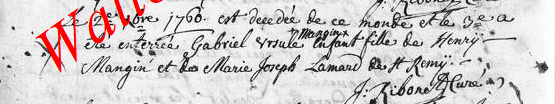 Le 2e 9bre 1766 est decedée de ce monde et le 3e a
été enterrée Gabriel Ursule Mangin enfant fille de Henrij
Mangin et de Marie Joseph Lamard de St Remij
J. Ribonet Curé